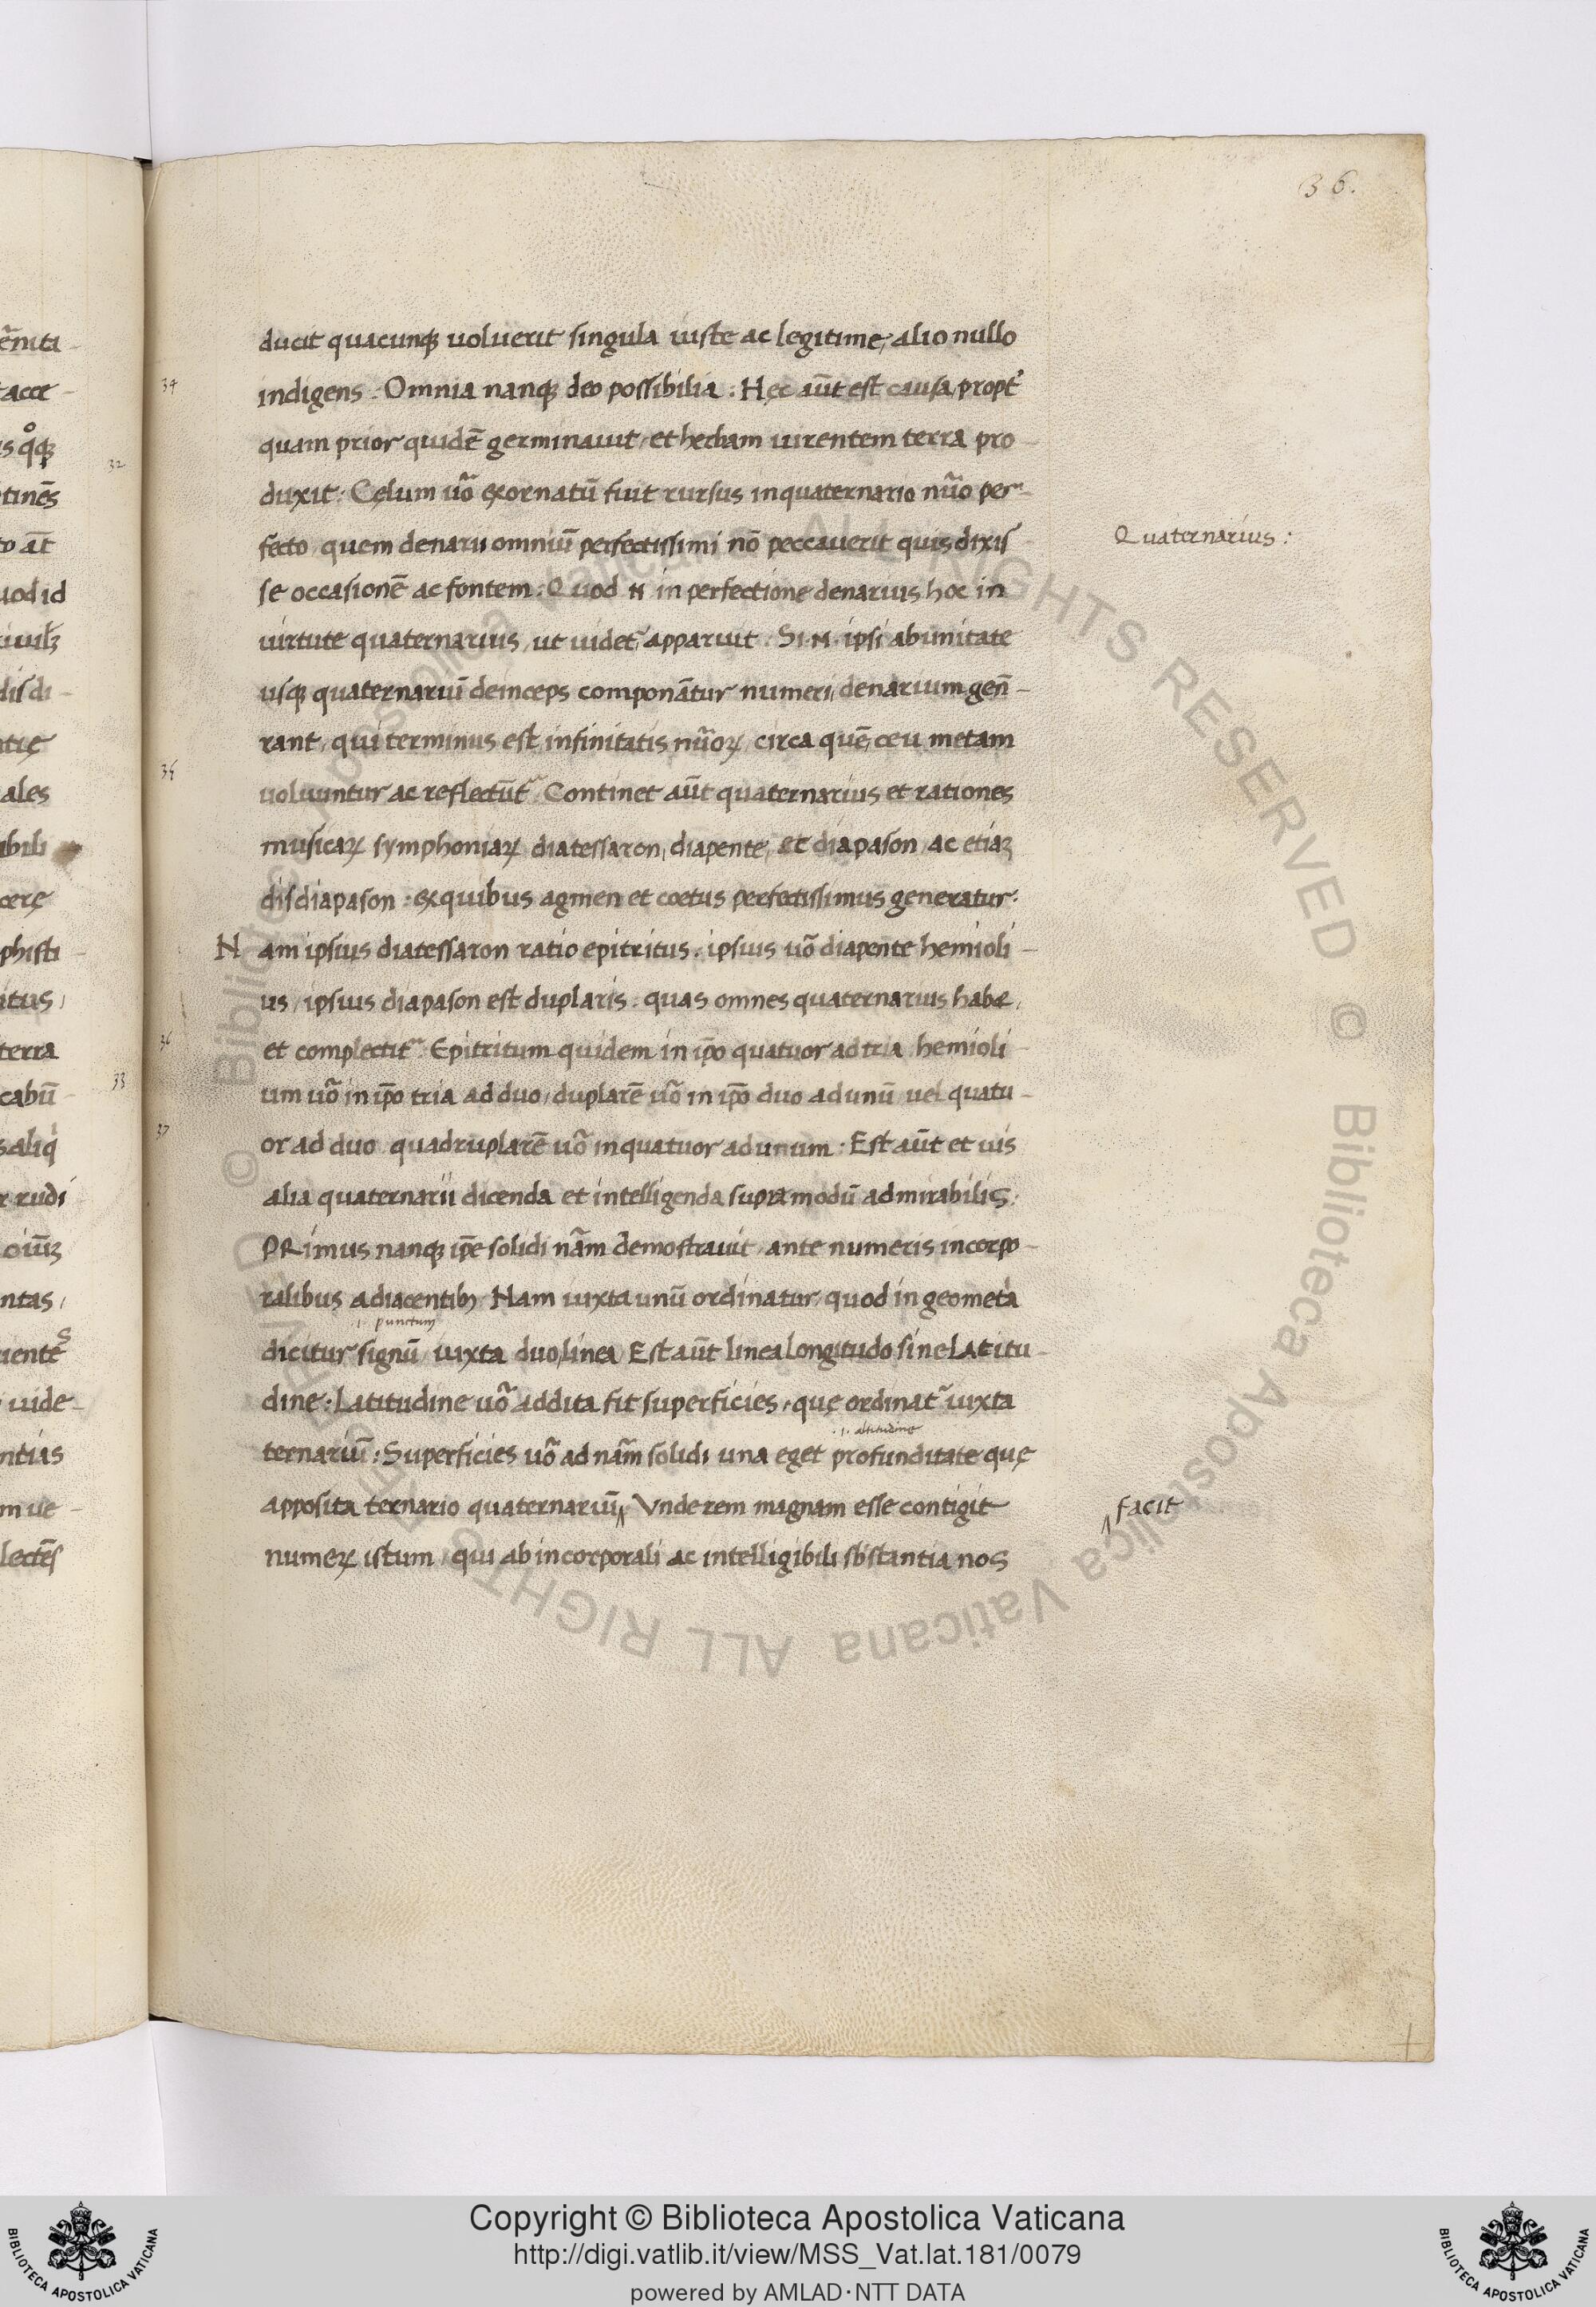 36.
ducit quacunqꝫ uoluerit singula iuste ac legitime, alio nullo
34
indigens. Omnia nanqꝫ deo possibilia: Hęc aũt est causa, propt̃
quam prior quidẽ germinauit, et herbam uirentem terra pro-
duxit: Cęlum uõ exornatũ fuit rursus in quaternario nũo per-
fecto, quem denarii omniũ perfectissimi nõ peccauerit quis dixis
Quaternarius:
se occasionẽ ac fontem: Quod .n. in perfectione denarius hoc in
uirtute quaternarius, ut uidet̃ apparuit. Si .n. ipsi ab unitate
usqꝫ quaternariũ deinceps componãtur numeri, denarium gen̄-
rant, qui terminus est infinitatis nũoꝝ, circa quẽ, ceu metam
35
uoluuntur ac reflectũt̃. Continet aũt quaternarius et rationes
musicaꝝ symphoniaꝝ diatessaron, diapente, et diapason, ac etiaꝫ
disdiapason: ex quibus agmen et coetus perfectissimus generatur:
Nam ipsius diatessaron ratio epitritus: ipsius uõ diapente hemioli-
us, ipsius diapason est duplaris: quas omnes quaternarius habe,
36
et complectit̃. Epitritum quidem in ip̃o quatuor ad tria, hemioli-
um uõ in ip̃o tria ad duo, duplarẽ uõ in ip̃o duo ad unũ, uel quatu-
37
or ad duo. quadruplarẽ uõ in quatuor ad unum: Est aũt et uis
alia quaternarii dicenda et intelligenda supra modũ admirabilis:
PRimus nanqꝫ ip̃e solidi nãm demostrauit, ante numeris incorpo-
ralibus adiacentibꝫ. Nam iuxta unũ ordinatur, quod in geomet̃a
.i. punctum
dicitur signũ, iuxta duo, linea. Est aũt linea longitudo sine Latitu-
dine: Latitudine uõ addita fit superficies, quę ordinat̃ iuxta
.i. altitudine
ternariũ: Superficies uõ ad nãm solidi una eget profunditate quę
apposita ternario quaternariũ⁁ Vnde rem magnam esse contigit
⁁ facit
numeꝝ istum, qui ab incorporali ac intelligibili sb̃stantia nos
32
33
Copyright © Biblioteca Apostolica Vaticana
http://digi.vatlib.it/view/MSS_Vat.lat.181/0079
powered by AMLAD·NTT DATA
BIBLIOTECA APOSTOLICA VATICANA
BIBLIOTECA APOSTOLICA VATICANA
© Biblioteca Apostolica Vaticana ALL RIGHTS RESERVED © Biblioteca Apostolica Vaticana ALL RIGHTS RESERVED